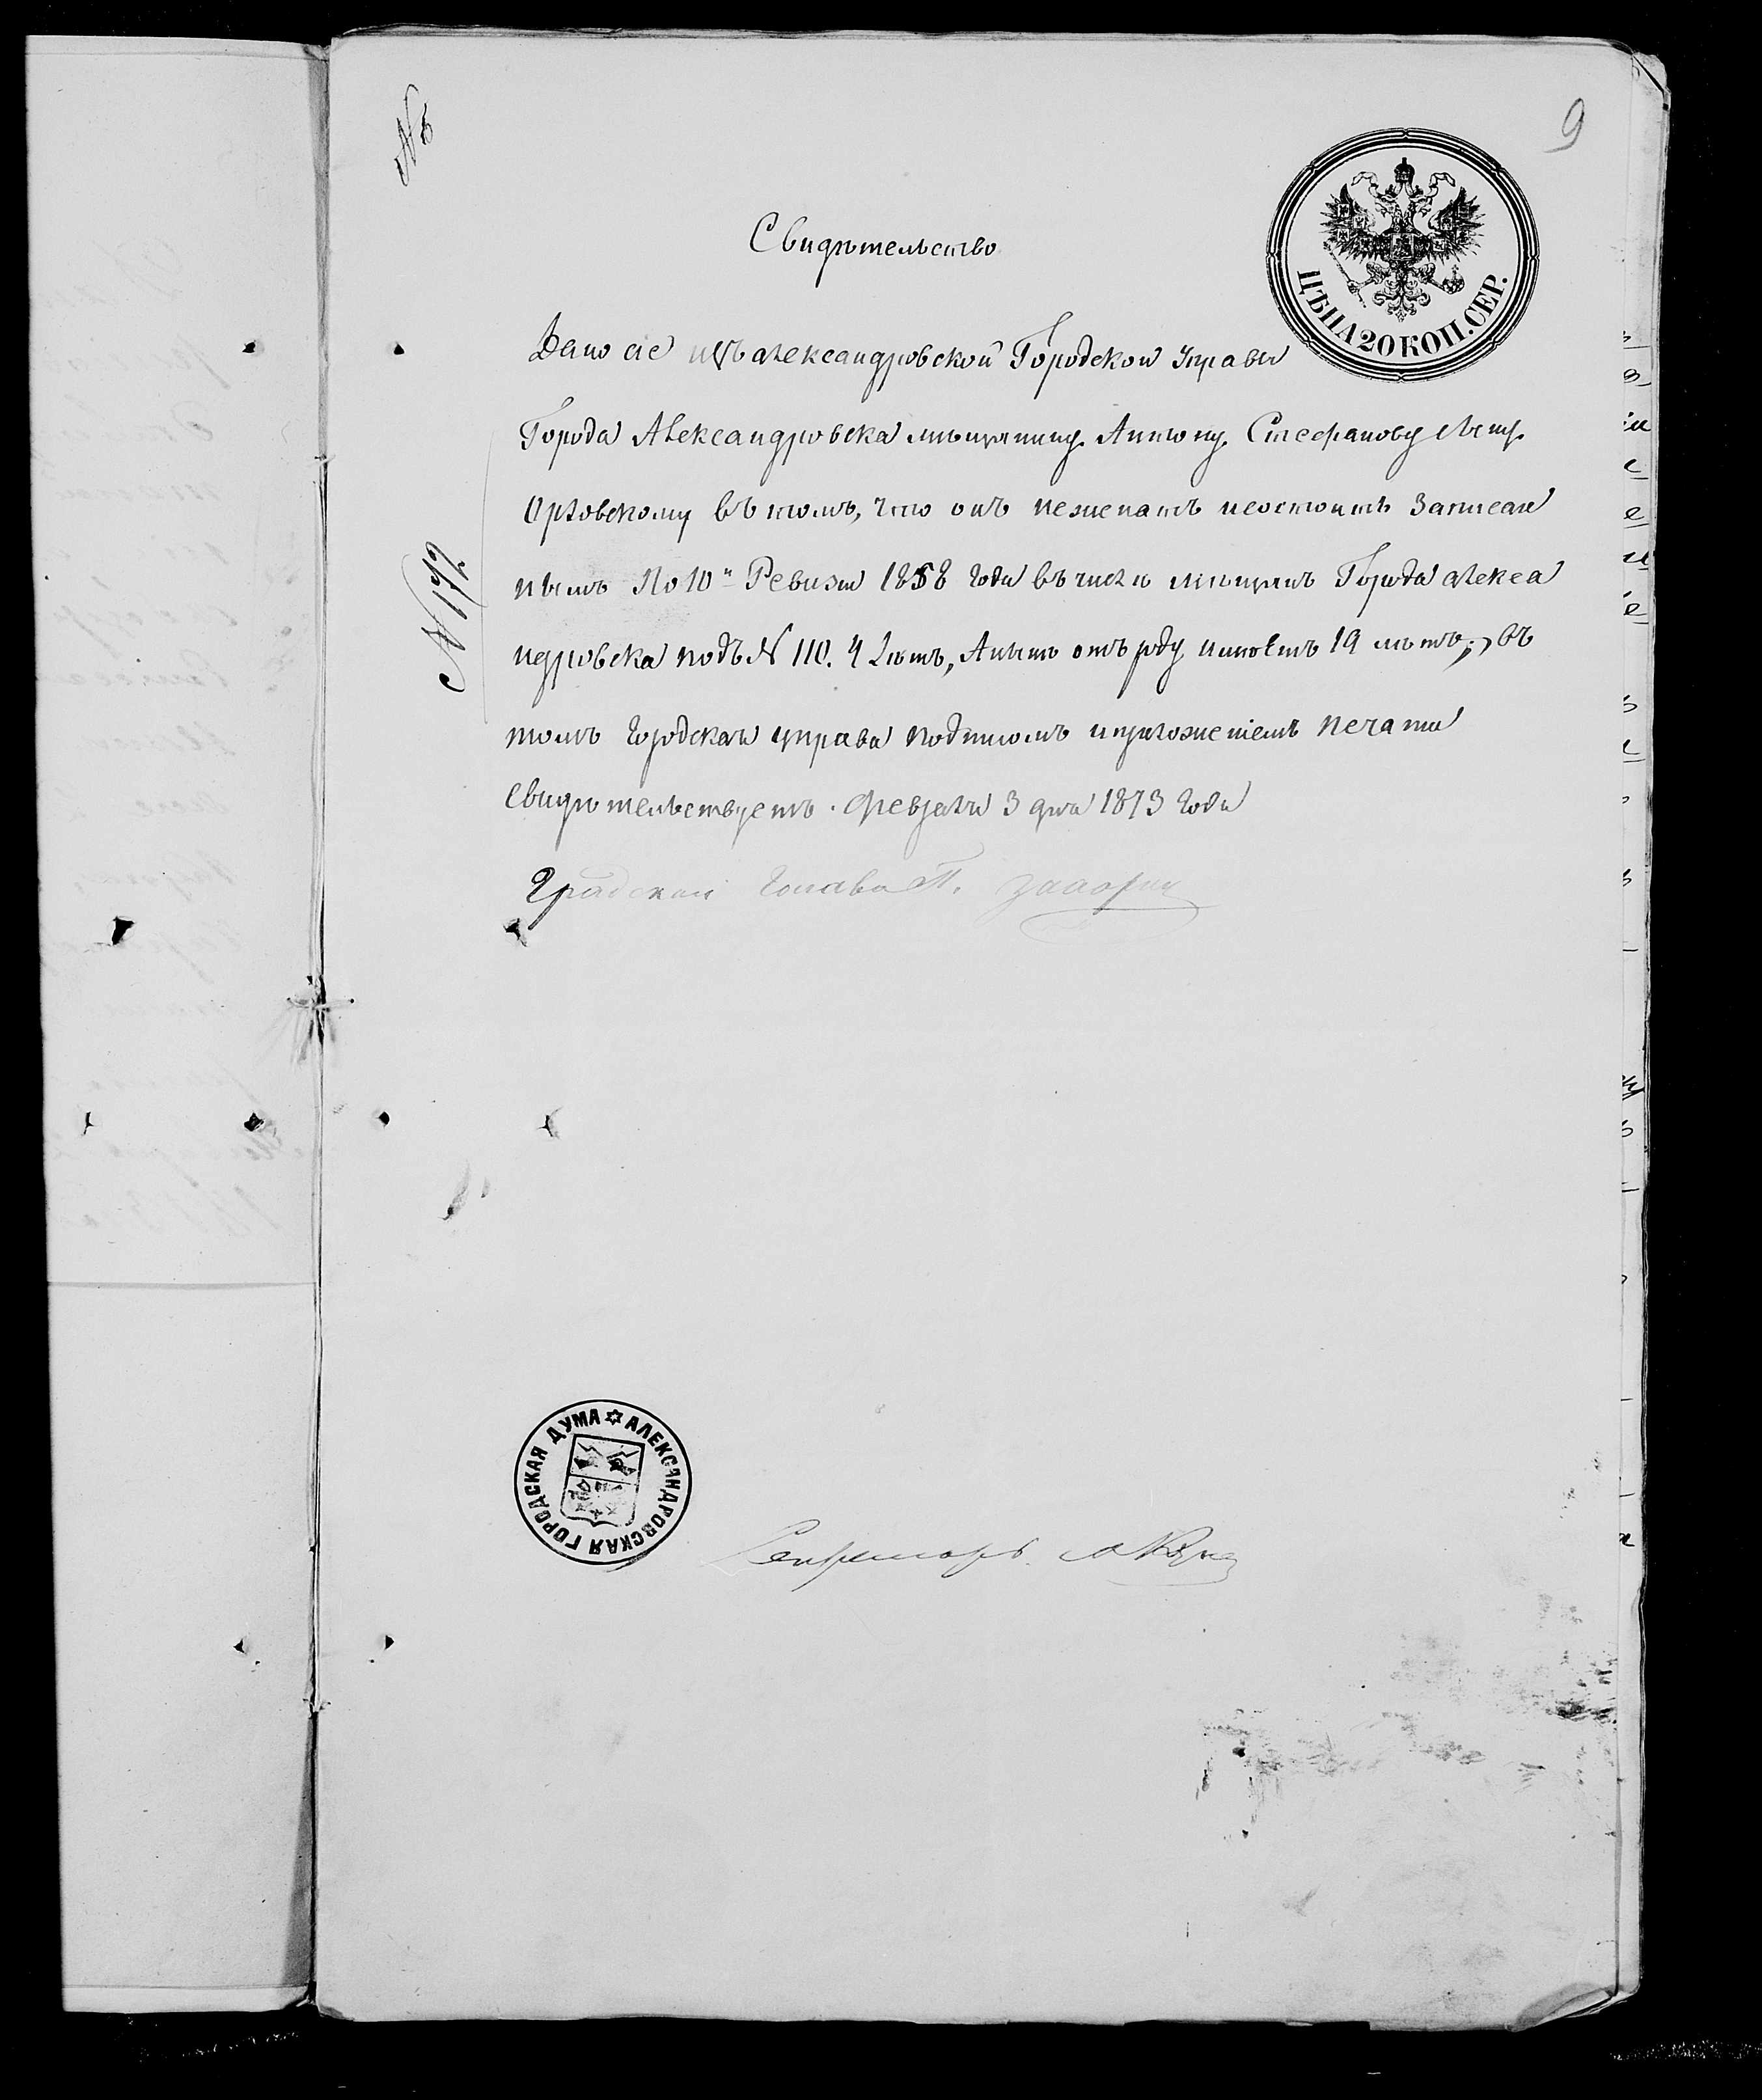 9
№
ЦѢНА 20 КОП. СЕР.
Свидѣтельство
Дано сіе изъ Александровской Городской Управы
Города Александровска мѣщанину Антону Стефанову
Орловскому въ томъ, что онъ неженатъ исостоитъ Записан
нымъ По 10й Ревизіи 1858 года въ числѣ мѣщанъ Города Алекса
ндровска подъ № 110. 4 лѣтъ, Антонъ отъ роду имѣетъ 19 лѣтъ; въ
томъ Городская управа подписомъ иприложеніемъ печати
свидѣтельствуетъ. Февраля 3 дня 1873 Года
№ 172
Градской Голова П.
АЛЕКСАНДРОВСКАЯ ГОРОДСКАЯ ДУМА
Секретарь